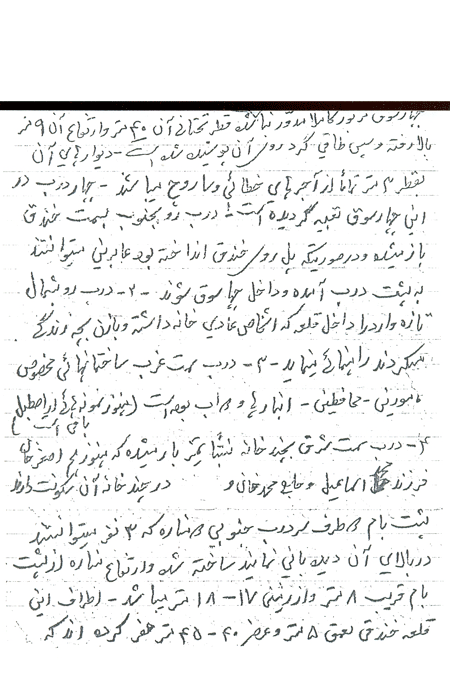 چهارسوق مزبور کاملا مدور نبا شده قطر تحتانی آن ۴۰ متر وارتفاع آن ۹ متر
بالا رفته و سپس طاقی گرد روی آن پوشیده شده است - دیوارهای آن
بقطر ۳ متر تماماً از آجرهای خطائی وساروج میباشد - چهار درب در
این چهارسوق تعبیه گردیده است درب رو بجنوب بسمت خندق
باز میشده و درصورتیکه پل روی خندق انداخته بود عابرین میتوانستند
به پشت درب آمده وداخل چهارسوق شوند - ۲ - درب رو بشمال
تازه واردرا داخل قلعه که اشخاص عادی خانه داشته وبازن بچه زندگی
میکردند راهنمائی مینماید - ۳ - درب سمت غرب ساختمانهائی مخصوص
مامورین - محافظین - انبارها و بوده است (هنوز نمونه های از اصطبل
باقی است)
۴ - درب سمت شرق بچند خانه نسبتاً بهتر باز میشده که هنوز اصغرخان
فرزند اسماعیل و حاجی محمدخان و در چند خانه آن سکونت دارند
پشت بام طرف سردرب جنوبی مناره که ۳ نفر میتوانستند
در بالای آن دیده بانی نمایند ساخته شده وارتفاع مناره از پشت
بام قریب ۸ متر واز زمین ۱۷ - ۱۸ متر میباشد - اطراف این
قلعه خندقی بعمق ۸ متر وعرض ۴۰ - ۴۵ متر حفر کرده اند که